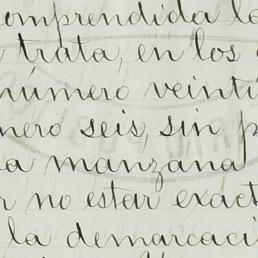 omprendida la
trata, en los
número veinti
nero seis, sin p
a manzana
r no estar exact
la demarcaci